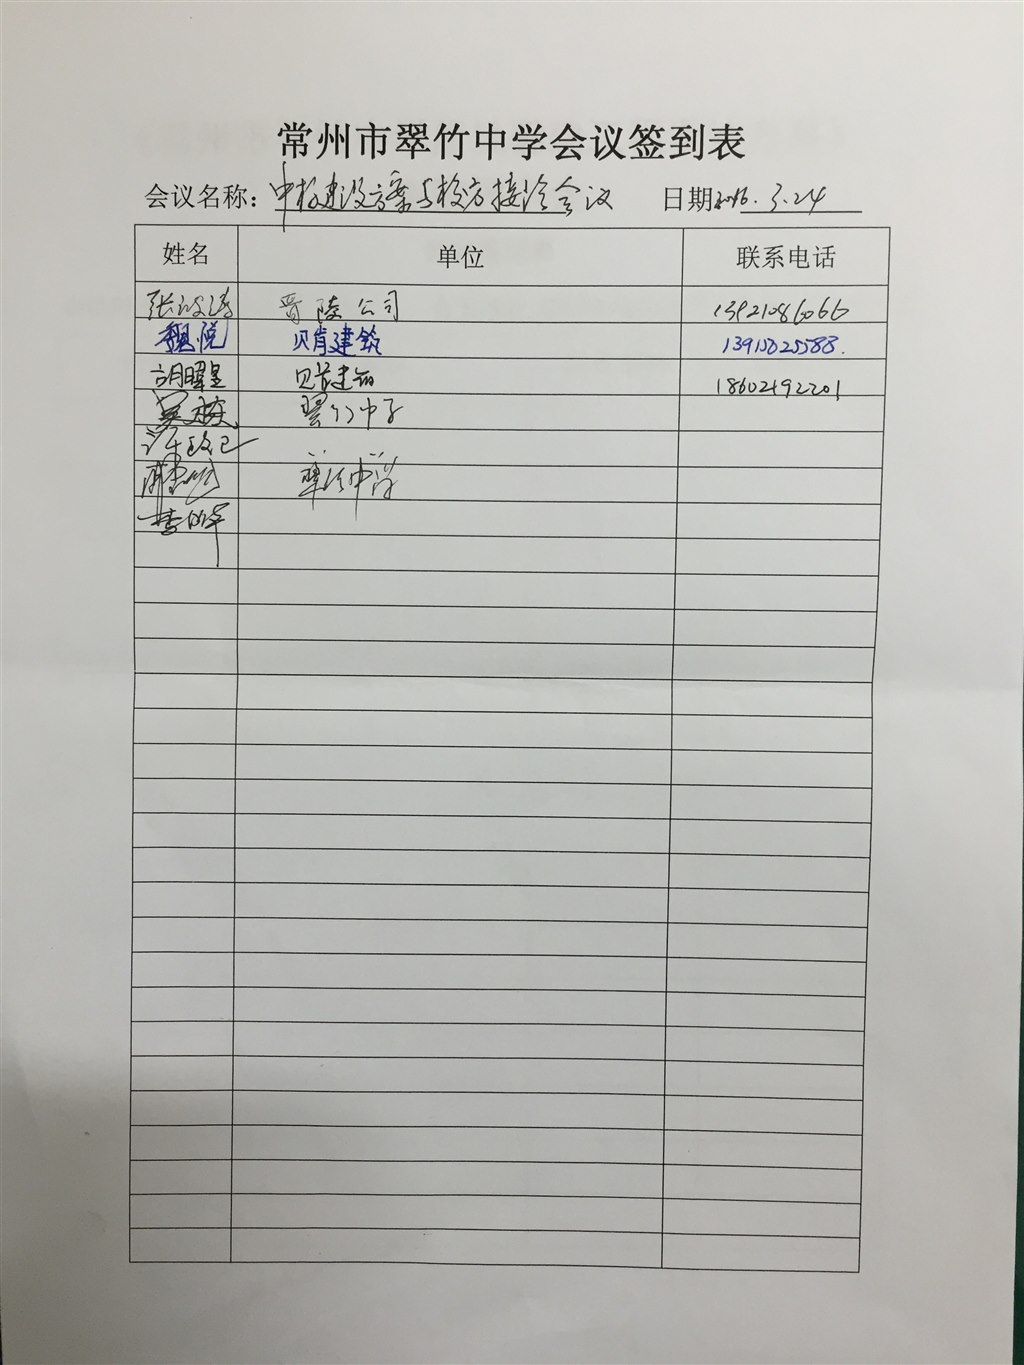 常州市翠竹中学会议签到表
会议名称：中校建设方案与校方接洽会议 日期2016.3.24
姓名 单位 联系电话
张波涛 晋陵公司 13921086066
魏悦 贝肯建筑 13915025588.
胡曜星 18602192201
吴 翠竹中学
翠竹中学
李